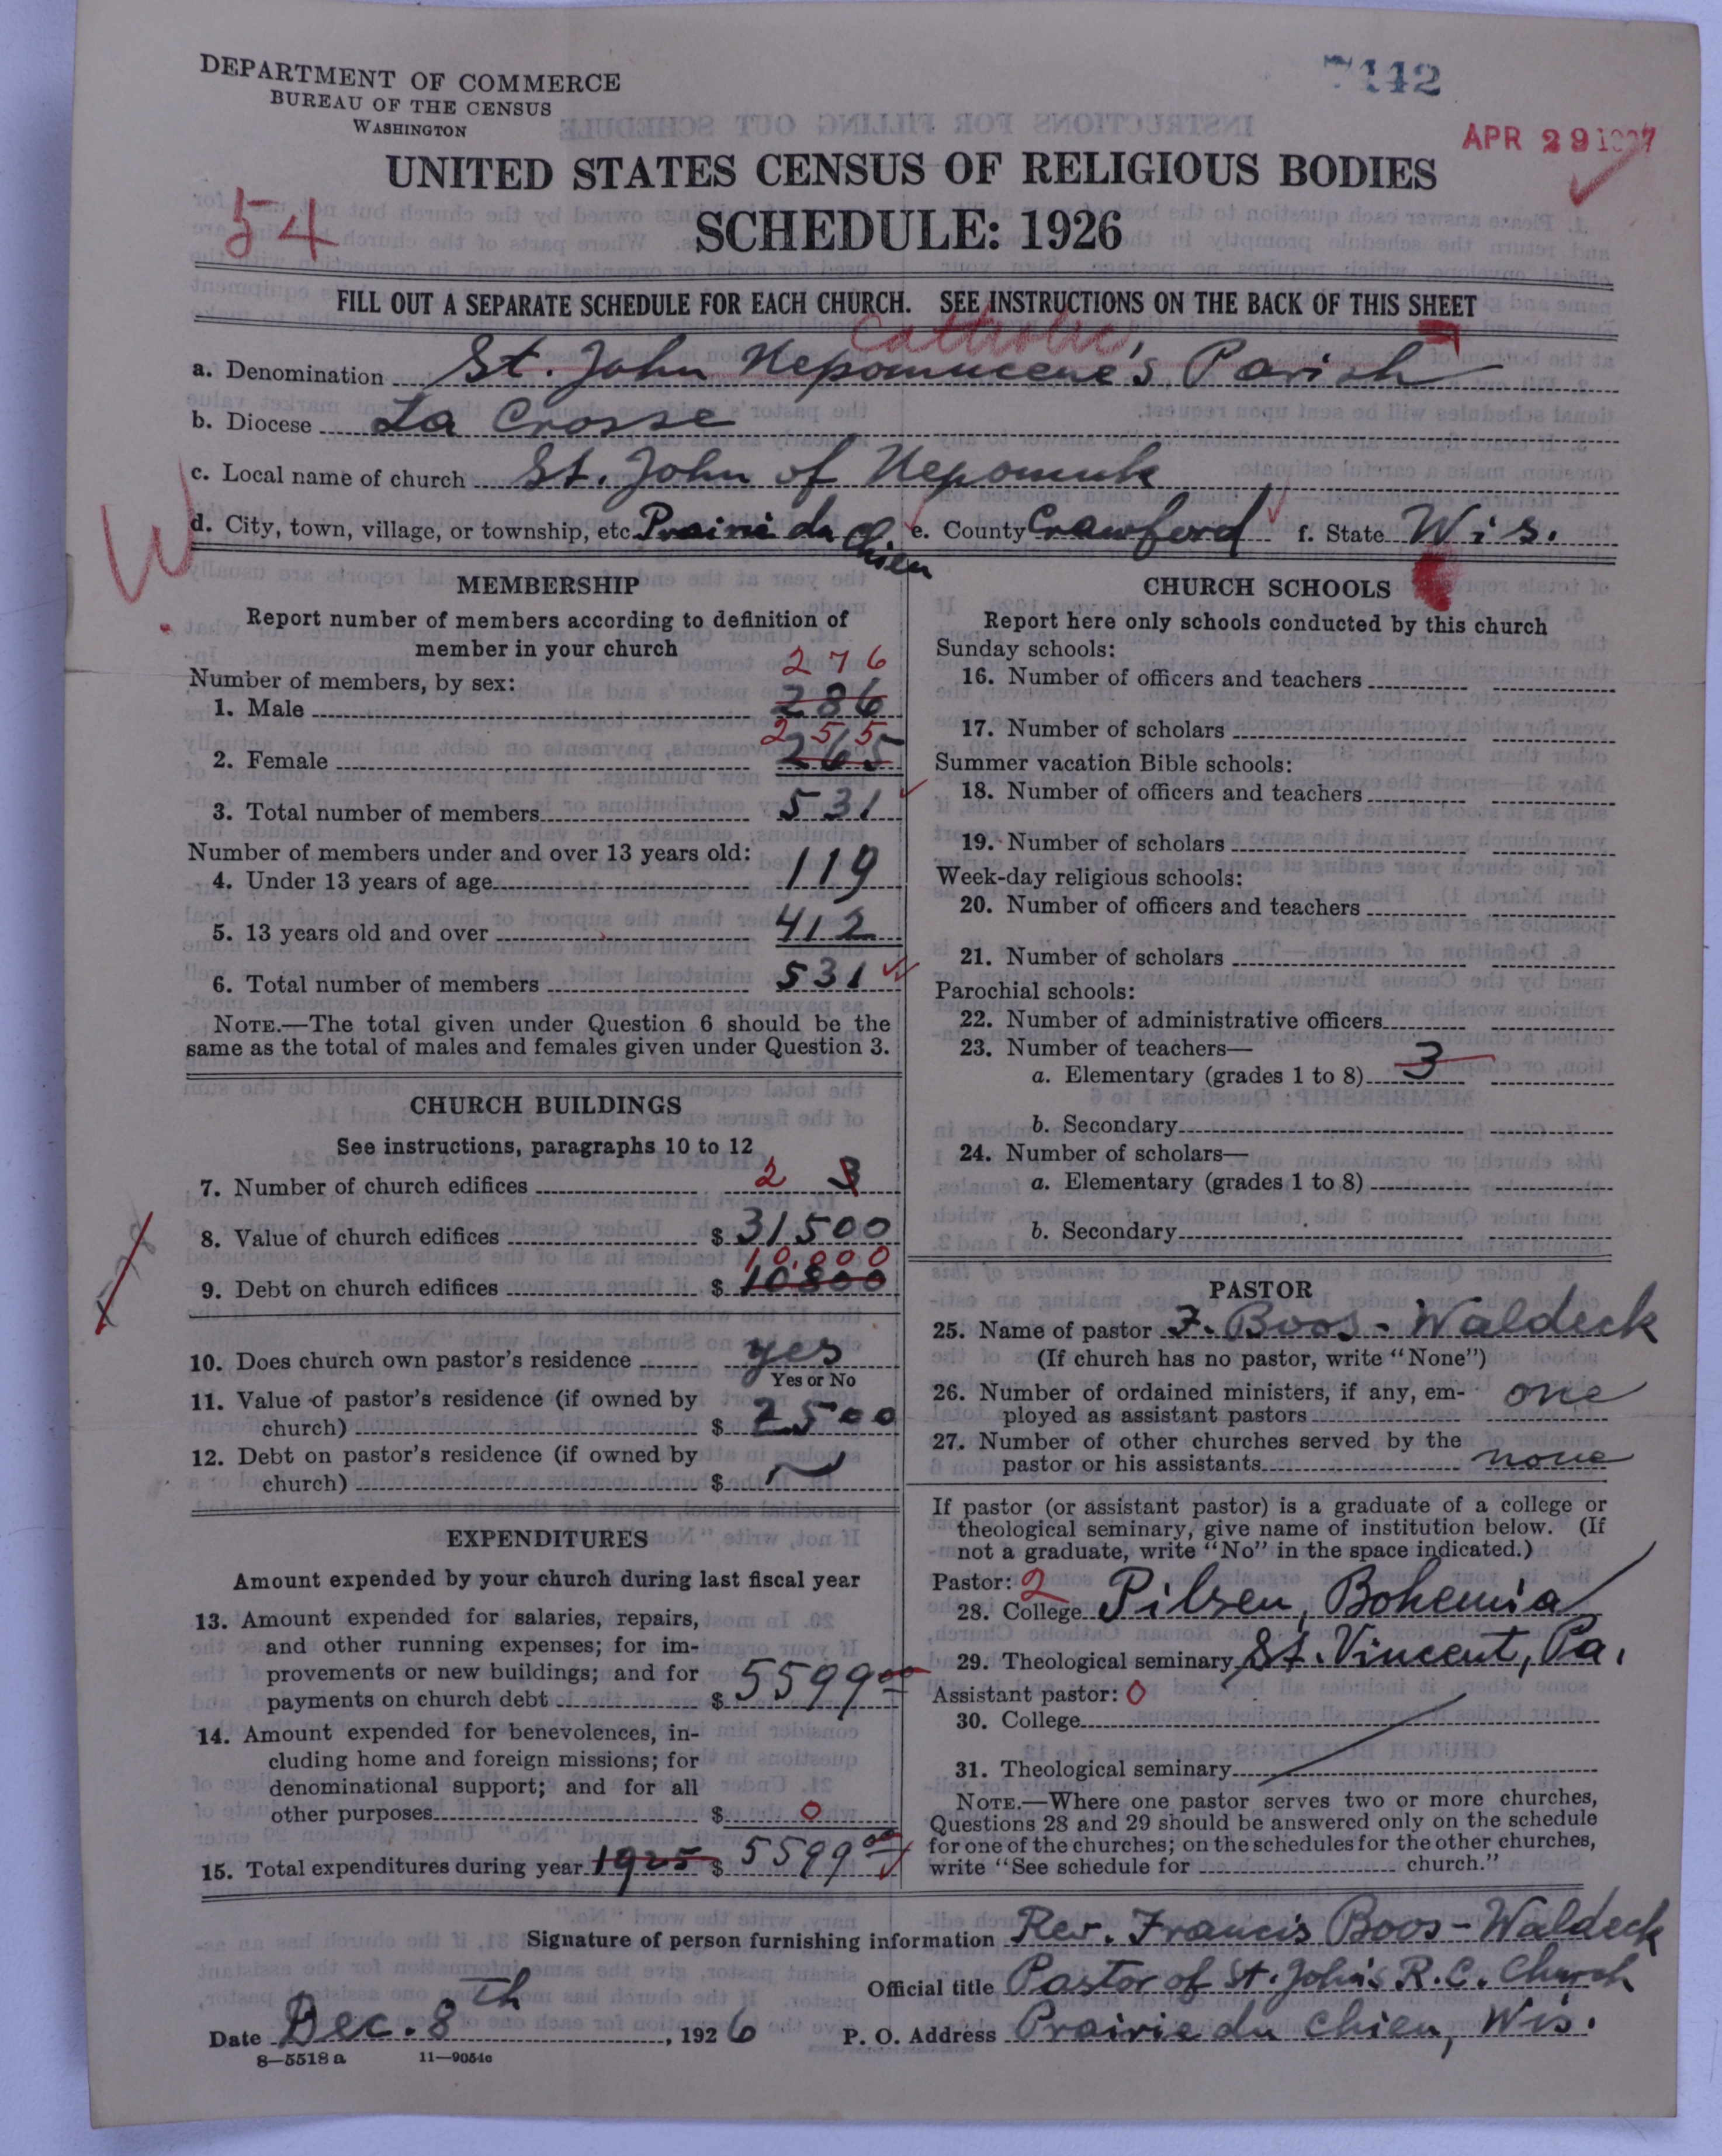 DEPARTMENT OF COMMERCE
BUREAU OF THE CENSUS
WASHINGTON
7442
APR 29 1927
UNITED STATES CENSUS OF RELIGIOUS BODIES
54
SCHEDULE: 1926
FILL OUT A SEPARATE SCHEDULE FOR EACH CHURCH. SEE INSTRUCTIONS ON THE BACK OF THIS SHEET
Catholic
a. Denomination St. John Nepomucene's Parish
b. Diocese La Crosse
c. Local name of church St. John of Nepomuk
W
d. City, town, village, or township, etc. Prairie du Chien e. County Crawford f. State Wis.
MEMBERSHIP
Report number of members according to definition of
member in your church
Number of members, by sex:
276
1. Male 286
255
2. Female 265
3. Total number of members 531
Number of members under and over 13 years old:
4. Under 13 years of age 119
5. 13 years old and over 412
6. Total number of members 531
NOTE.—The total given under Question 6 should be the
same as the total of males and females given under Question 3.
CHURCH BUILDINGS
See instructions, paragraphs 10 to 12
7. Number of church edifices 2 3
8. Value of church edifices $ 31500
10,000
9. Debt on church edifices $ 10800
10. Does church own pastor's residence yes
Yes or No
11. Value of pastor's residence (if owned by
church) $ 2500
12. Debt on pastor's residence (if owned by
church) $
EXPENDITURES
Amount expended by your church during last fiscal year
13. Amount expended for salaries, repairs,
and other running expenses; for im-
provements or new buildings; and for
payments on church debt $ 5599 00
14. Amount expended for benevolences, in-
cluding home and foreign missions; for
denominational support; and for all
other purposes $ 0
15. Total expenditures during year 1925 $ 5599 00
CHURCH SCHOOLS
Report here only schools conducted by this church
Sunday schools:
16. Number of officers and teachers
17. Number of scholars
Summer vacation Bible schools:
18. Number of officers and teachers
19. Number of scholars
Week-day religious schools:
20. Number of officers and teachers
21. Number of scholars
Parochial schools:
22. Number of administrative officers
23. Number of teachers—
a. Elementary (grades 1 to 8) 3
b. Secondary
24. Number of scholars—
a. Elementary (grades 1 to 8)
b. Secondary
PASTOR
25. Name of pastor F. Boos-Waldeck
(If church has no pastor, write "None")
26. Number of ordained ministers, if any, em-
ployed as assistant pastors one
27. Number of other churches served by the
pastor or his assistants none
If pastor (or assistant pastor) is a graduate of a college or
theological seminary, give name of institution below. (If
not a graduate, write "No" in the space indicated.)
Pastor: 2
28. College Pilsen, Bohemia
29. Theological seminary St. Vincent, Pa.
Assistant pastor: 0
30. College
31. Theological seminary
NOTE.—Where one pastor serves two or more churches,
Questions 28 and 29 should be answered only on the schedule
for one of the churches; on the schedules for the other churches,
write "See schedule for church."
Signature of person furnishing information Rev. Francis Boos-Waldeck
Official title Pastor of St. John's R.C. Church
Date Dec. 8th, 1926 P. O. Address Prairie du Chien, Wis.
8—5518 a 11—9054c